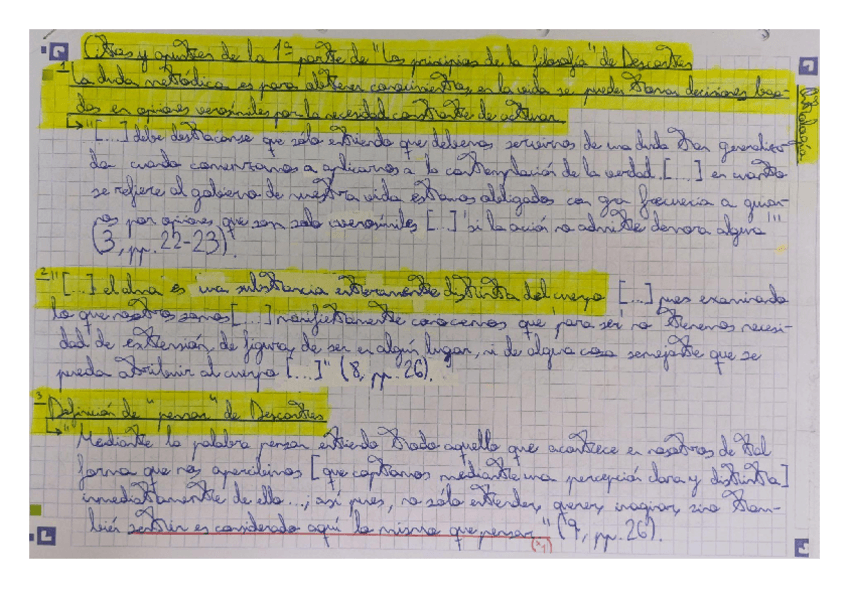 Citas y apuntes de la 1ª parte de "Los principios de la filosofía" de Descartes
1 La duda metódica es para obtener conocimientos, en la vida se pueden tomar decisiones basa-
das en opiniones verosímiles por la necesidad constante de actuar.
Ontología
"[...] debe destacarse que sólo entiendo que debemos servirnos de una duda tan generaliza-
da cuando comenzamos a aplicarnos a la contemplación de la verdad. [...] en cuanto
se refiere al gobierno de nuestra vida estamos obligados con gran frecuencia a guiar-
nos por opiniones que son sólo verosímiles [...] si la acción no admite demora alguna"
(3, pp. 22-23).
2 "[...] el alma es una substancia enteramente distinta del cuerpo [...] pues examinando
lo que nosotros somos [...] manifiestamente conocemos que para ser no tenemos necesi-
dad de extensión, de figura, de ser en algún lugar, ni de alguna cosa semejante que se
pueda atribuir al cuerpo [...]" (8, pp. 26).
3 Definición de "pensar" de Descartes
"Mediante la palabra pensar entiendo todo aquello que acontece en nosotros de tal
forma que nos apercibimos [que captamos mediante una percepción clara y distinta]
inmediatamente de ello...; así pues, no sólo entender, querer, imaginar, sino tam-
bién sentir es considerado aquí lo mismo que pensar." (9, pp. 26).